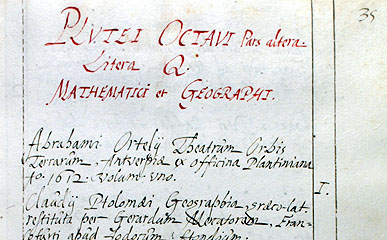 35
PLVTEI OCTAVI Pars altera.
Litera Q.
MATHEMATICI et GEOGRAPHI.
Abrahami Ortelij Theatrum Orbis
Terrarum. Antverpiæ ex officina Plantiniana
fo. 1612 Volume uno. I.
Claudij Ptolomæi, Geographia, græco-lat.
restituta per Gerardum Mercatorem, Fran-
cofurti apud Jodocum Hondium.